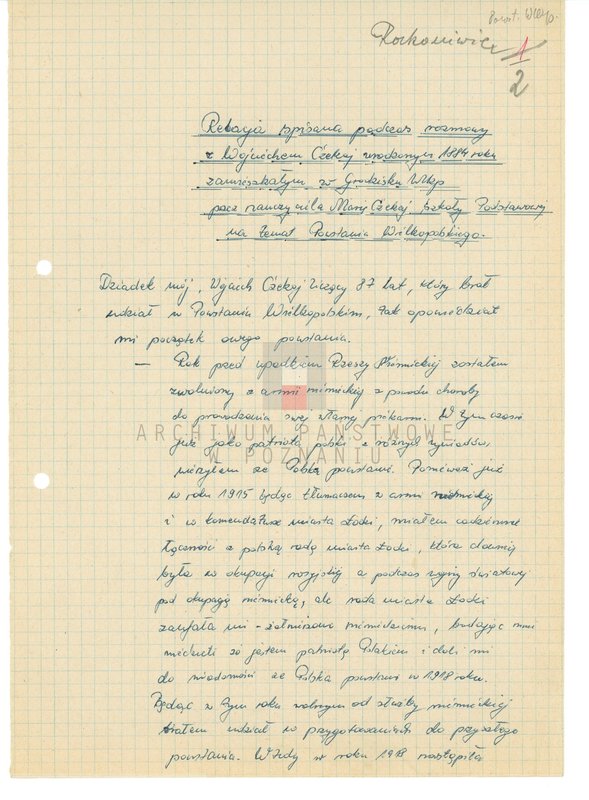 Powst. Wlkp.
1
2
Relacja spisana podczas rozmowy
z Wojciechem Czekaj urodzonym 1884 roku
zamieszkałym w Grodzisku Wlkp
przez nauczyciela Marię Czekaj Szkoły Podstawowej
na temat Powstania Wielkopolskiego.
Dziadek mój, Wojciech Czekaj liczący 87 lat, który brał
udział w Powstaniu Wielkopolskim, tak opowiedział
mi początek owego powstania.
— Rok przed upadkiem Rzeszy Niemieckiej zostałem
zwolniony z armii niemieckiej z powodu choroby
do prowadzenia swej własnej piekarni. W tym czasie
już jako patriota polski z różnych
wierzyłem że Polska powstanie. Ponieważ już
w roku 1915 będąc tłumaczem z armii niemieckiej
i w komendaturze miasta Łodzi, miałem codziennie
łączność z polską radą miasta Łodzi, która dawniej
była w okupacji rosyjskiej a podczas wojny światowej
pod okupacją niemiecką, ale rada miasta Łodzi
zaufała mi - żołnierzowi niemieckiemu, badając mnie
wiedzieli że jestem patriotą Polakiem i dali mi
do wiadomości że Polska powstanie w 1918 roku.
Będąc w tym roku wolnym od służby niemieckiej
brałem udział w przygotowaniach do przyszłego
powstania. Wtedy w roku 1918 nastąpiła
ARCHIWUM PAŃSTWOWE
W POZNANIU